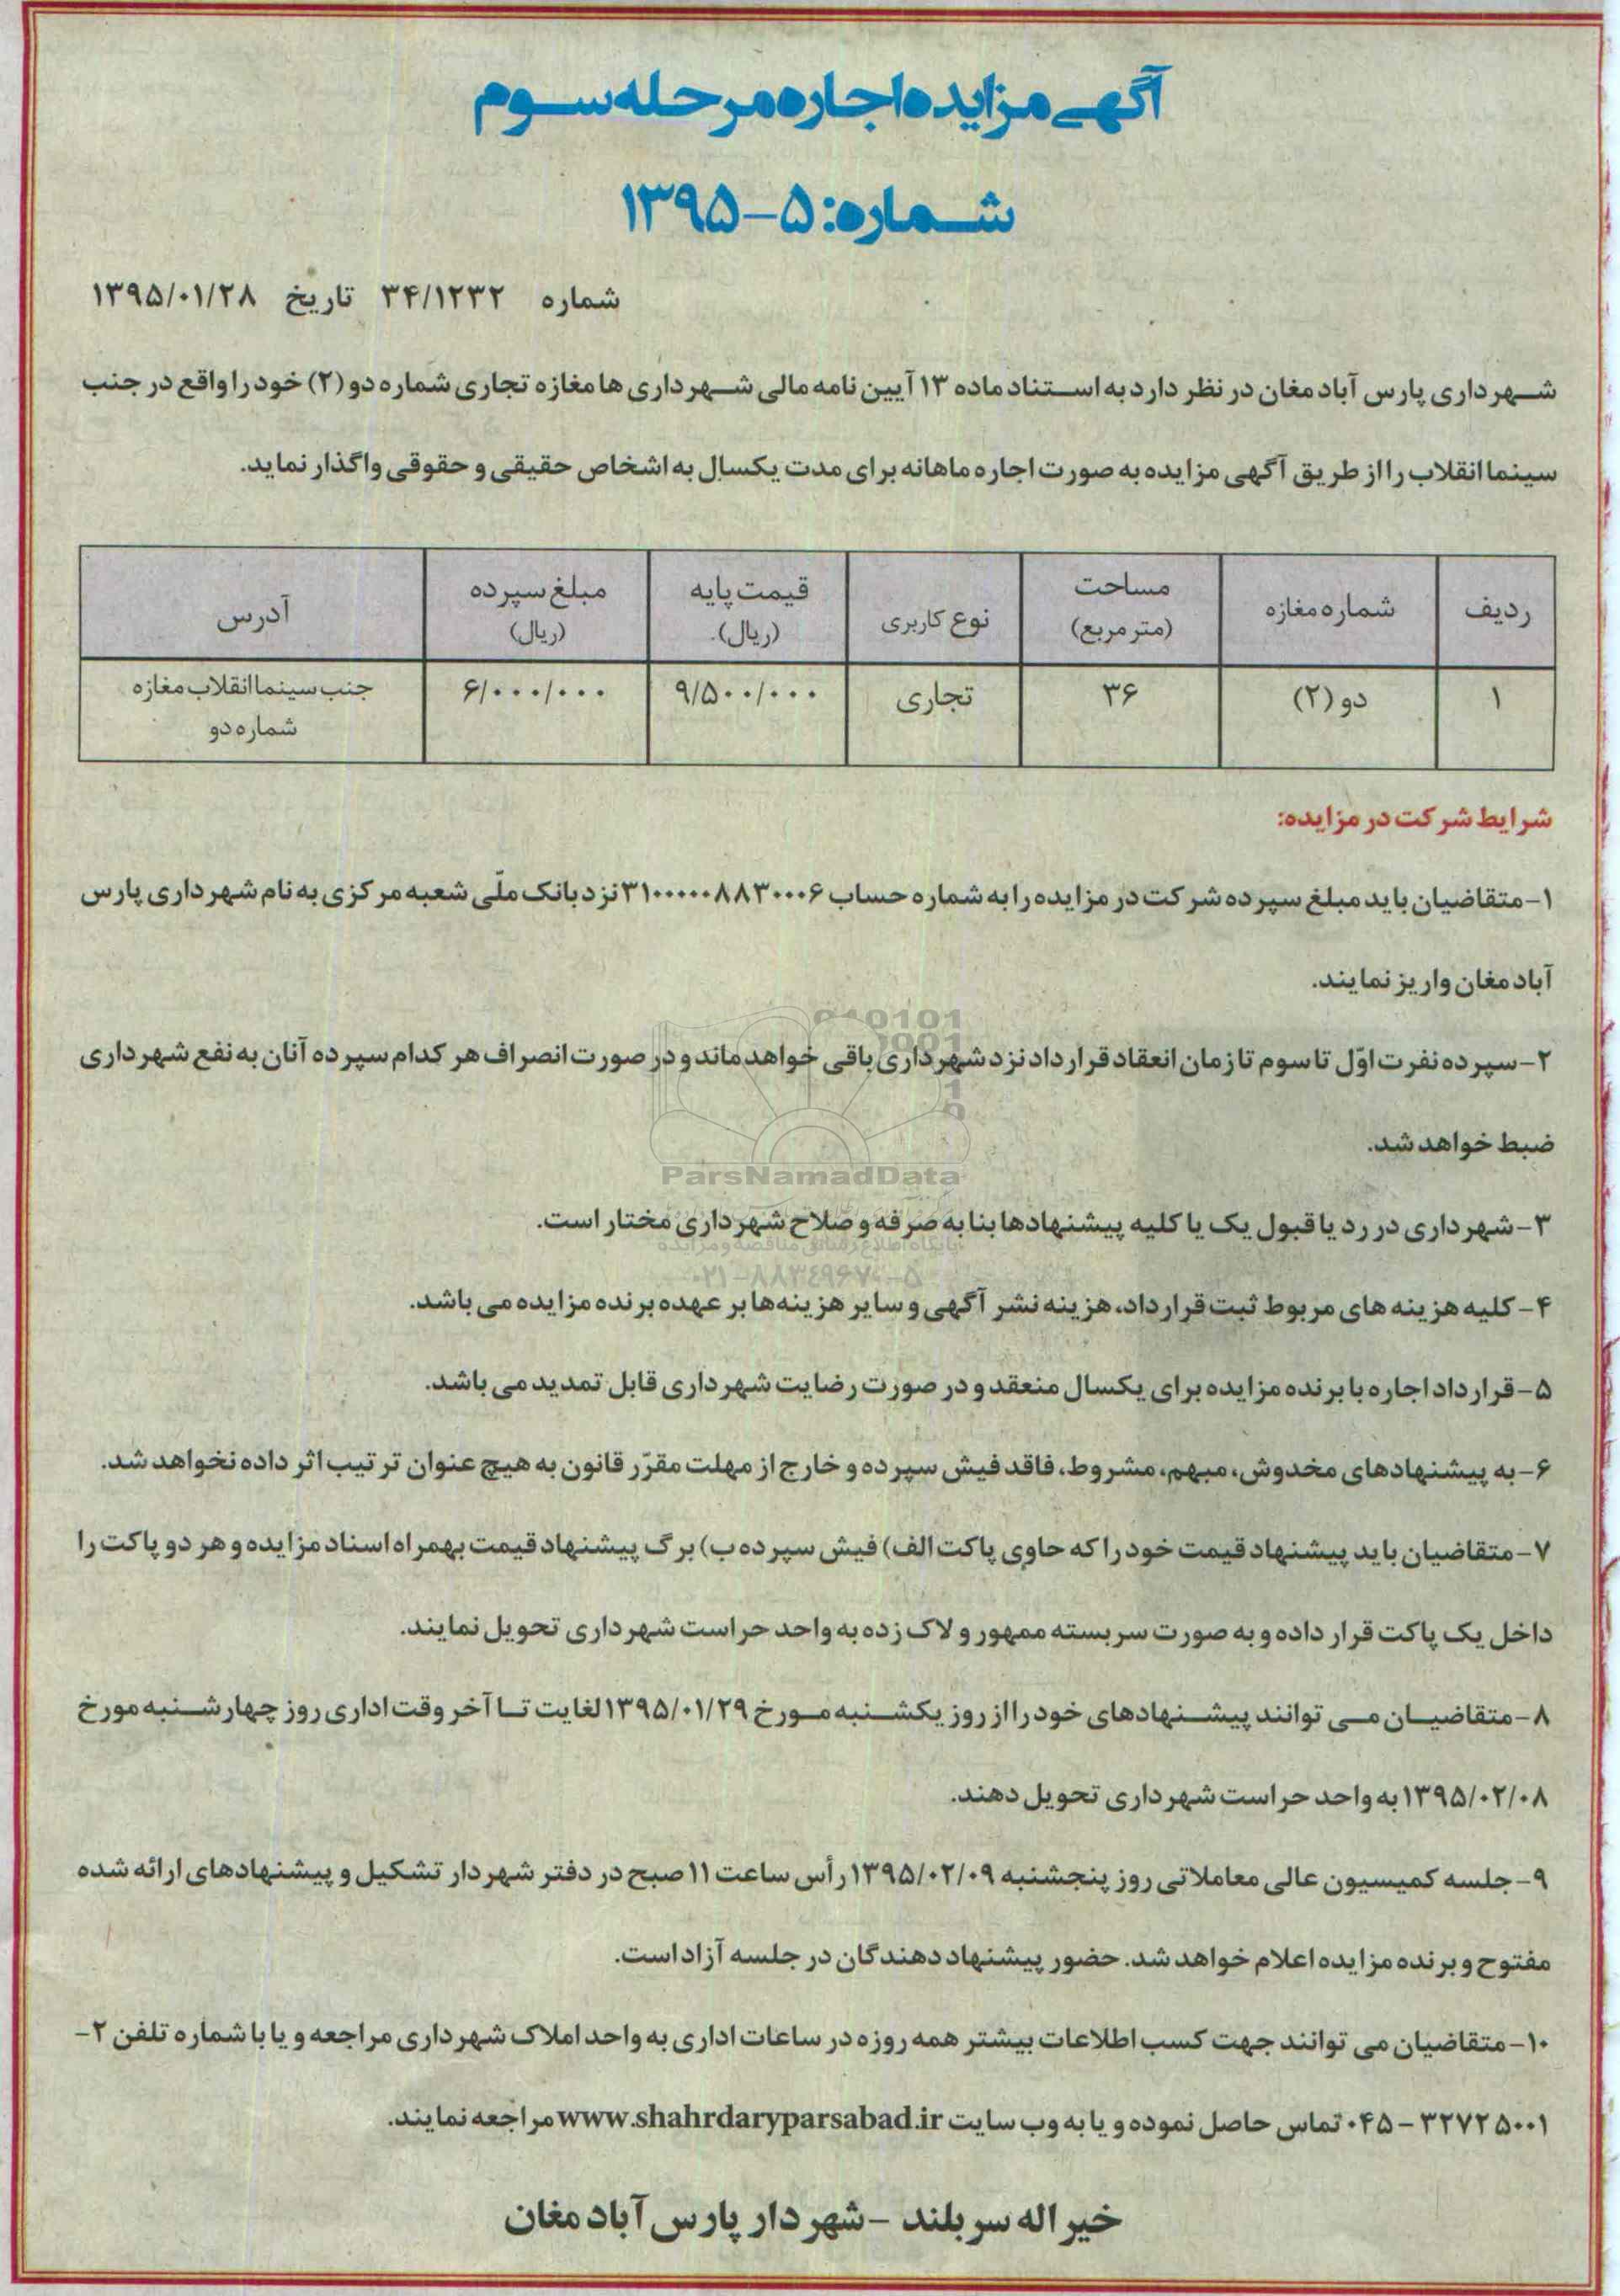 آگهی مزایده اجاره مرحله سوم
شماره: ۵-۱۳۹۵
شماره ۳۴/۱۲۳۲ تاریخ ۱۳۹۵/۰۱/۲۸
شهرداری پارس آباد مغان در نظر دارد به استناد ماده ۱۳ آیین نامه مالی شهرداری ها مغازه تجاری شماره دو (۲) خود را واقع در جنب
سینما انقلاب را از طریق آگهی مزایده به صورت اجاره ماهانه برای مدت یکسال به اشخاص حقیقی و حقوقی واگذار نماید.
ردیف شماره مغازه مساحت (متر مربع) نوع کاربری قیمت پایه (ریال) مبلغ سپرده (ریال) آدرس
۱ دو (۲) ۳۶ تجاری ۹/۵۰۰/۰۰۰ ۶/۰۰۰/۰۰۰ جنب سینما انقلاب مغازه شماره دو
شرایط شرکت در مزایده:
۱- متقاضیان باید مبلغ سپرده شرکت در مزایده را به شماره حساب ۳۱۰۰۰۰۰۸۸۳۰۰۰۶ نزد بانک ملّی شعبه مرکزی به نام شهرداری پارس
آباد مغان واریز نمایند.
۲- سپرده نفرت اوّل تا سوم تا زمان انعقاد قرارداد نزد شهرداری باقی خواهد ماند و در صورت انصراف هر کدام سپرده آنان به نفع شهرداری
ضبط خواهد شد.
ParsNamadData
۳- شهرداری در رد یا قبول یک یا کلیه پیشنهادها بنا به صرفه و صلاح شهرداری مختار است.
پایگاه اطلاع رسانی مناقصه و مزایده
۰۲۱-۸۸۳۴۹۶۷۰-۵
۴- کلیه هزینه های مربوط ثبت قرارداد، هزینه نشر آگهی و سایر هزینه‌ها بر عهده برنده مزایده می باشد.
۵- قرارداد اجاره با برنده مزایده برای یکسال منعقد و در صورت رضایت شهرداری قابل تمدید می باشد.
۶- به پیشنهادهای مخدوش، مبهم، مشروط، فاقد فیش سپرده و خارج از مهلت مقرّر قانون به هیچ عنوان ترتیب اثر داده نخواهد شد.
۷- متقاضیان باید پیشنهاد قیمت خود را که حاوی پاکت الف) فیش سپرده ب) برگ پیشنهاد قیمت بهمراه اسناد مزایده و هر دو پاکت را
داخل یک پاکت قرار داده و به صورت سربسته ممهور و لاک زده به واحد حراست شهرداری تحویل نمایند.
۸- متقاضیان می توانند پیشنهادهای خود را از روز یکشنبه مورخ ۱۳۹۵/۰۱/۲۹ لغایت تا آخر وقت اداری روز چهارشنبه مورخ
۱۳۹۵/۰۲/۰۸ به واحد حراست شهرداری تحویل دهند.
۹- جلسه کمیسیون عالی معاملاتی روز پنجشنبه ۱۳۹۵/۰۲/۰۹ رأس ساعت ۱۱ صبح در دفتر شهردار تشکیل و پیشنهادهای ارائه شده
مفتوح و برنده مزایده اعلام خواهد شد. حضور پیشنهاد دهندگان در جلسه آزاد است.
۱۰- متقاضیان می توانند جهت کسب اطلاعات بیشتر همه روزه در ساعات اداری به واحد املاک شهرداری مراجعه و یا با شماره تلفن ۲-
۰۴۵-۳۲۷۲۵۰۰۱ تماس حاصل نموده و یا به وب سایت www.shahrdaryparsabad.ir مراجعه نمایند.
خیر اله سربلند - شهردار پارس آباد مغان